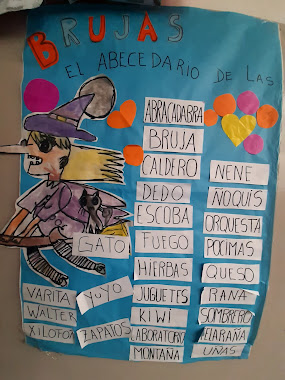 BRUJAS
EL ABECEDARIO DE LAS
ABRACADABRA
BRUJA
CALDERO
DEDO
ESCOBA
FUEGO
GATO
HIERBAS
JUGUETES
KIWI
LABORATORIO
MONTAÑA
NENE
ÑOQUIS
ORQUESTA
POCIMAS
QUESO
RANA
SOMBRERO
TELARAÑA
UÑAS
VARITA
WALTER
XILOFON
YUYO
ZAPATOS